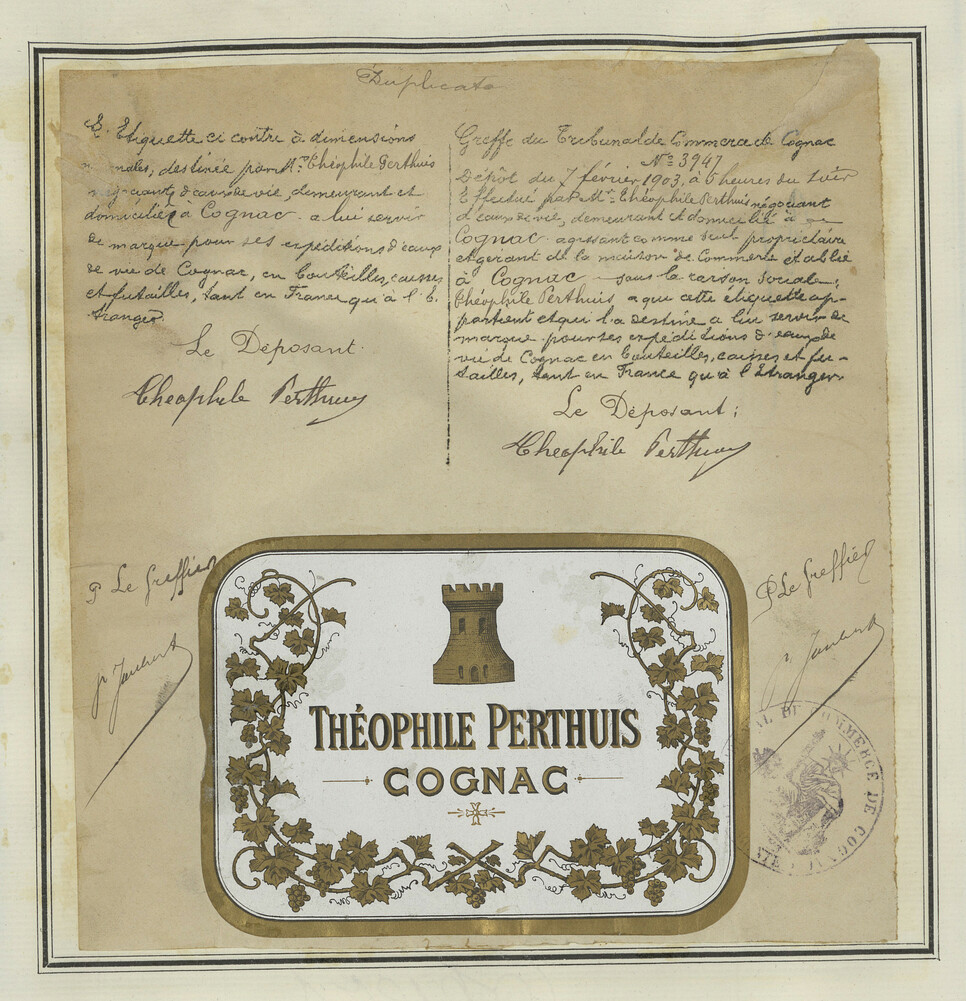 Duplicata
Etiquette ci contre à dimensions
destinée par Mr. Théophile Perthuis
d'eaux de vie, demeurant et
domicilié à Cognac a lui servir
de marque pour ses expéditions d'eaux
de vie de Cognac, en bouteilles, caisses
et futailles, tant en France qu'à l'é-
tranger.
Le Déposant.
Théophile Perthuis
Greffe du Tribunal de Commerce de Cognac
No 3947
Dépôt du 7 février 1903, à 5 heures du soir
Effectué par Mr Théophile Perthuis négociant
d'eaux de vie, demeurant et domicilié à
Cognac agissant comme seul propriétaire
et gérant de la maison de Commerce établie
à Cognac sous la raison sociale:
Théophile Perthuis a qui cette étiquette ap-
partient et qui l'a destiné a lui servir de
marque pour ses expéditions d'eaux de
vie de Cognac en bouteilles, caisses et fu-
tailles, tant en France qu'à l'Etranger
Le Déposant:
Théophile Perthuis
P Le Greffier
P Le Greffier
THÉOPHILE PERTHUIS
COGNAC
DE COMMERCE DE COGNAC